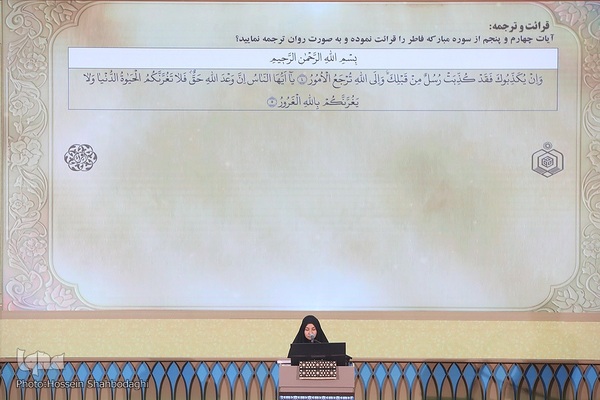 قرائت و ترجمه:
آیات چهارم و پنجم از سوره مبارکه فاطر را قرائت نموده و به صورت روان ترجمه نمایید؟
بِسْمِ اللهِ الرَّحْمٰنِ الرَّحِیمِ
وَاِنْ یُکَذِّبُوکَ فَقَدْ کُذِّبَتْ رُسُلٌ مِنْ قَبْلِکَ وَاِلَی اللهِ تُرْجَعُ الْاُمُورُ ﴿۴﴾ یٰٓا اَیُّهَا النّاسُ اِنَّ وَعْدَ اللهِ حَقٌّ فَلا تَغُرَّنَّکُمُ الْحَیٰوةُ الدُّنْیا وَلا
یَغُرَّنَّکُمْ بِاللهِ الْغَرُورُ ﴿۵﴾
ایکنا
Photo:Hossein Shahbodaghi